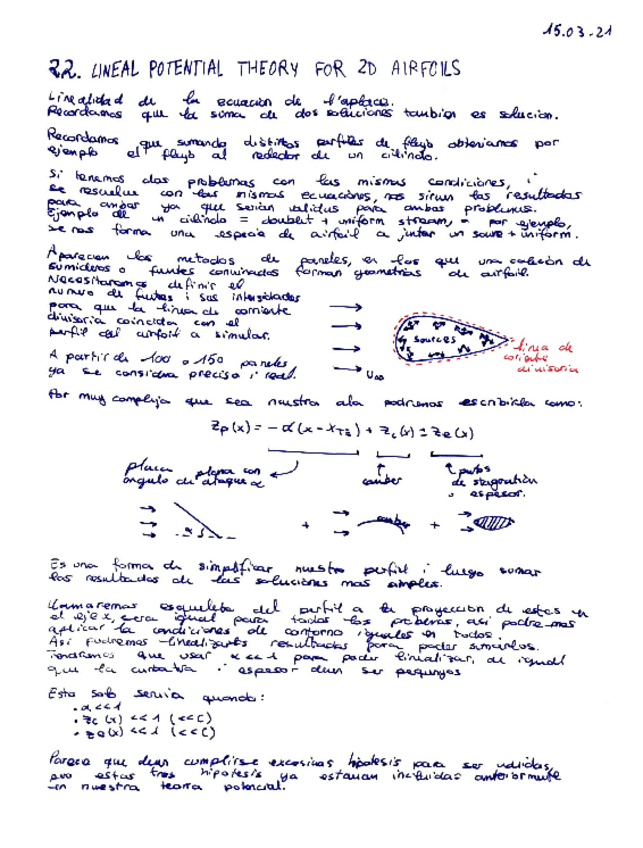 15.03-21
2.2. LINEAL POTENTIAL THEORY FOR 2D AIRFOILS
Linealidad de la ecuación de l'aplace.
Recordamos que la suma de dos soluciones tambien es solucion.
Recordamos que sumando distintos perfiles de flujo obteniamos por
ejemplo el flujo al rededor de un cilindo.
Si tenemos dos problemas con las mismas condiciones, i
se resuelve con las mismas ecuaciones, nos sirven los resultados
para ambos ya que serian validas para ambos problemas.
Ejemplo de un cilindo = doublet + uniform stream, por ejemplo,
se nos forma una especie de airfoil a juntar un soure + uniform.
Aparecen los metodos de paneles, en los que una colección de
sumideros o fuentes convinados forman geometrias de airfoil.
Necesitaremos definir el
numero de fuentes i sus intensidades
para que la linea de corriente
divisoria coincida con el
perfil del airfoil a simular.
A partir de 100 o 150 paneles
ya se considera preciso i real.
U∞
sources
linea de
coriente
divisoria
Por muy compleja que sea nuestra ala podremos escribirla como:
Zp(x) = -α(x-xTE) + Zc(x) ± Ze(x)
placa plana con
angulo de ataque α
camber
puntos
de stagnation
o espesor.
α
+
camber
+
Es una forma de simplificar nuestro perfil i luego sumar
los resultados de las soluciones mas simples.
Llamaremos esqueleto del perfil a la proyeccion de estas en
el eje x, sera igual para todos los problemas, asi podremos
aplicar la condiciones de contorno iguales en todos.
Asi podremos linealizar resultados para poder sumarlos.
Tendremos que usar α<<1 para poder linealizar, de igual
que la curbatura i espesor deven ser pequenyos
Esto solo serviria quando:
• α<<1
• Zc (x) <<1 (<<C)
• Ze(x) <<1 (<<C)
Parece que deven cumplirse excesivas hipotesis para ser validas,
pero estas tres hipotesis ya estavan incluidas anteriormente
en nuestra teoria potencial.